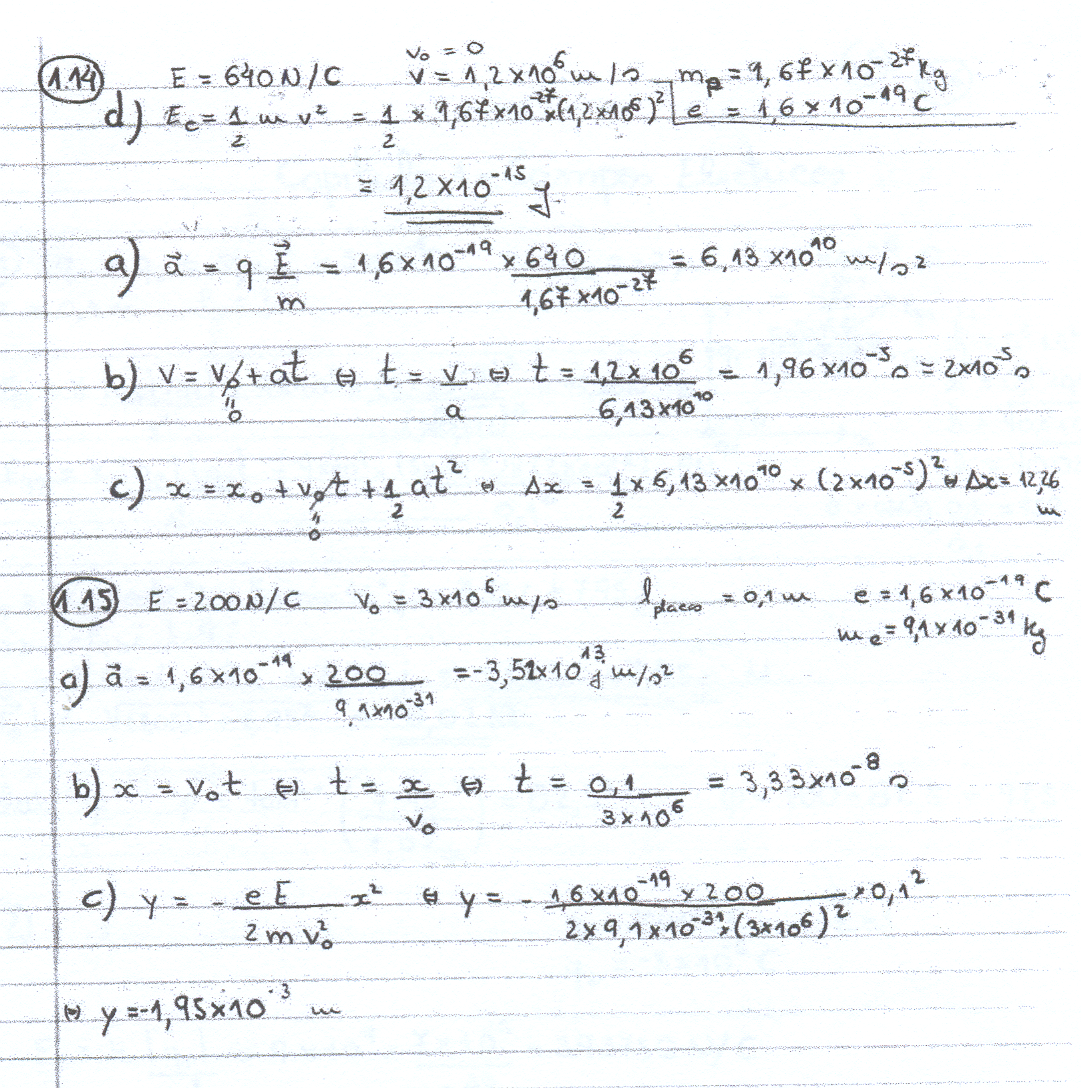 1.14 E = 640 N/C v₀ = 0 v = 1,2×10⁶ m/s mₚ = 1,67×10⁻²⁷ kg
d) E_c = 1/2 m v² = 1/2 × 1,67×10⁻²⁷ × (1,2×10⁶)² e = 1,6×10⁻¹⁹ C
= 1,2×10⁻¹⁵ J
a) a⃗ = q E⃗/m = 1,6×10⁻¹⁹ × 640/1,67×10⁻²⁷ = 6,13×10¹⁰ m/s²
b) v = v₀ + at ⇔ t = v/a ⇔ t = 1,2×10⁶/6,13×10¹⁰ = 1,96×10⁻⁵ s = 2×10⁻⁵ s
" 0
c) x = x₀ + v₀t + 1/2 at² ⇔ Δx = 1/2 × 6,13×10¹⁰ × (2×10⁻⁵)² ⇔ Δx = 12,26 m
" 0
1.15 E = 200 N/C v₀ = 3×10⁶ m/s l placas = 0,1 m e = 1,6×10⁻¹⁹ C
mₑ = 9,1×10⁻³¹ kg
a) a⃗ = 1,6×10⁻¹⁹ × 200/9,1×10⁻³¹ = -3,52×10¹³ j m/s²
b) x = v₀t ⇔ t = x/v₀ ⇔ t = 0,1/3×10⁶ = 3,33×10⁻⁸ s
c) y = - eE/2mv₀² x² ⇔ y = - 1,6×10⁻¹⁹ × 200/2×9,1×10⁻³¹×(3×10⁶)² × 0,1²
⇔ y = -1,95×10⁻³ m